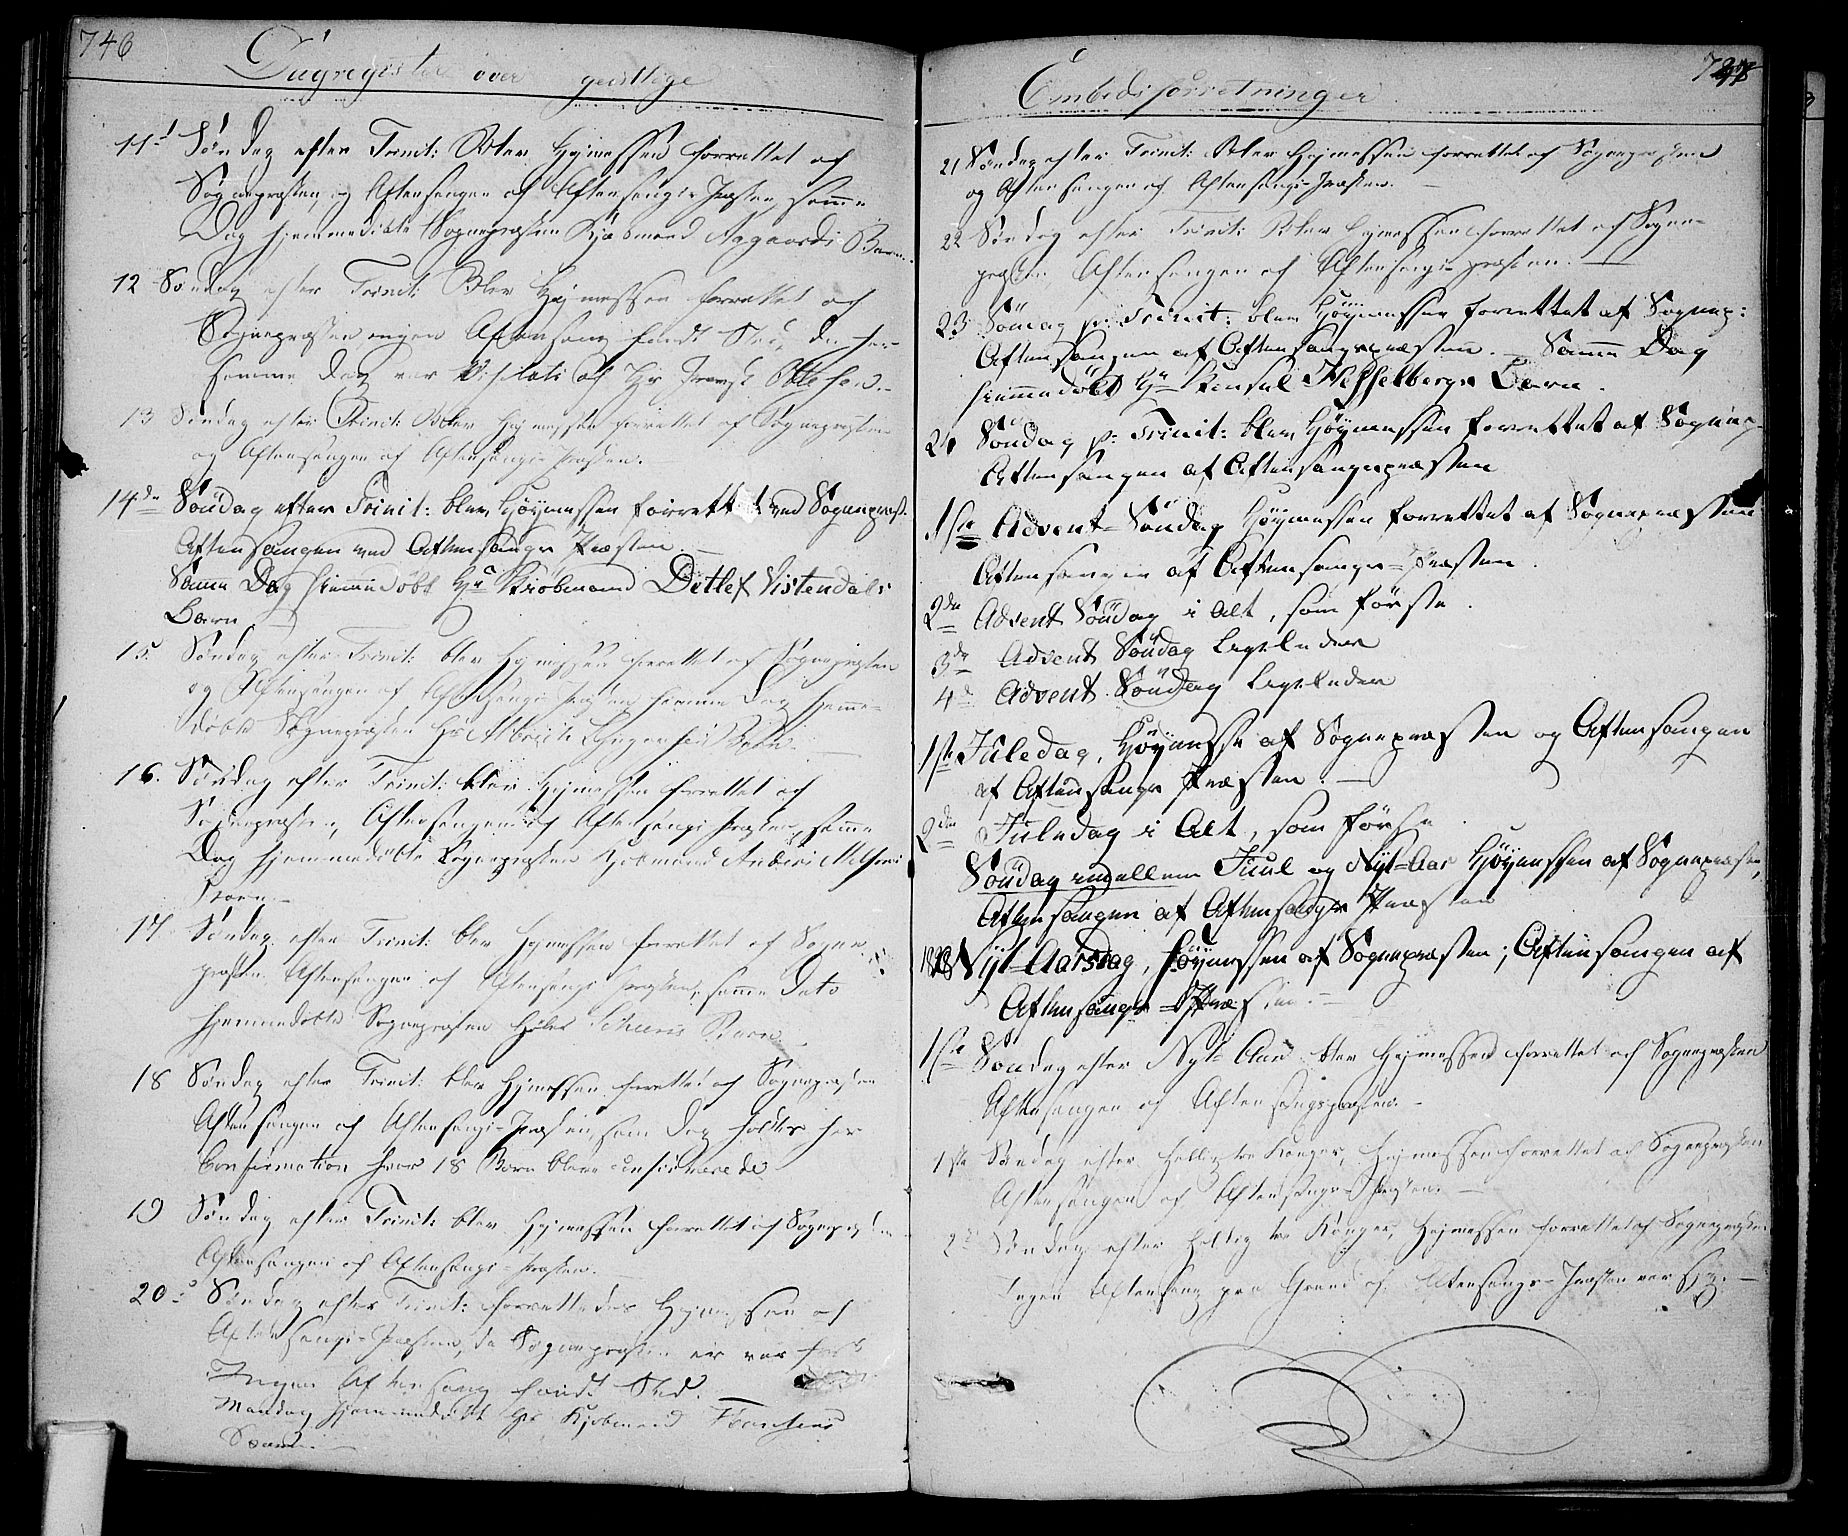 746
Dagregister over geistlige
11t Søndag efter Trinit: Blev Høimessen forrettet af
Sognepræsten, og Aftensangen af Aftensangs-Præsten, samme
Dag hjemmedøbte Sognepræsten Kjøbmand Aagaards Barn.
12 Søndag efter Trinit: Blev Høimessen forrettet af
Sognepræsten ingen Aftensang fandt Sted, da her
samme Dag var Visitats af Hr Provst
13 Søndag efter Trinit: Blev Høimessen forrettet af Sognepræsten
og Aftensangen af Aftensangs-Præsten.
14de Søndag efter Trinit: blev Høymessen forrettet ved Sognepræst.
Aftensangen ved Aftensangs Præsten. —
Samme Dag hiemmedøbt Hr Kiøbmand Detlef Vistendals
Barn.
15. Søndag efter Trinit: blev Høimessen forrettet af Sognepræsten
og Aftensangen af Aftensangs Præsten samme Dag hjemme-
døbte Sognepræsten Hr Barn.
16. Søndag efter Trinit: blev Høimessen forrettet af
Sognepræsten, Aftensangen af Aftensangs Præsten, samme
Dag hjemmedøbte Sognepræsten Kjøbmand Anders
Barn.
17 Søndag efter Trinit: blev Høimessen forrettet af Sogne-
præsten, Aftensangen af Aftensangs Præsten, samme Dato
hjemmedøbte Sognepræsten Barn
18 Søndag efter Trinit: blev Høimessen forrettet af Sognepræsten
Aftensangen af Aftensangs-Præsten, samme Dag holdtes her
Confirmation hvor 18 Børn bleve confirmerede
19 Søndag efter Trinit: blev Høimessen forrettet af Sognepræsten
Aftensangen af Aftensangs-Præsten.
20 Søndag efter Trinit: forrettedes Høimessen af
Aftensangs-Præsten, da Sognepræsten ei var frisk
Ingen Aftensang fandt Sted. —
Mandag hjemmedøbt Hr Kjøbmand
Embedsforretninger
21 Søndag efter Trinit: Blev Høimessen forrettet af Sognepræsten
og Aftensangen af Aftensangs-Præsten. —
22 Søndag efter Trinit: Blev Høimessen forrettet af Sogne-
præsten Aftensangen af Aftensangs-præsten. —
23 Søndag p: Trinit: blev Høymessen forrettet af Sognep:
Aftensangen af Aftensangspræsten. — Samme Dag
hiemmedøbt Hr Konsul Hesselbergs Barn.
24 Søndag p: Trinit: blev Høymessen forrettet af Sognep.
Aftensangen af Aftensangspræsten
1ste Advent-Søndag Høymessen forrettet af Sognepræsten
Aftensangen af Aftensangs-Præsten.
2den Advent Søndag i Alt, som første.
3de Advent Søndag ligeledes
4de Advent Søndag ligeledes
1ste Juledag, Høymesse af Sognepræsten og Aftensangen
af Aftensangs Præsten. —
2den Juledag i Alt, som første.
Søndag imellem Juul og Nyt-Aar Høymessen af Sognepræsten,
Aftensangen af Aftensangs Præsten
Nyt-Aarsdag, Høymessen af Sognepræsten; Aftensangen af
Aftensangs-Præsten. —
1ste Søndag efter Nyt-Aar blev Høimessen forrettet af Sognepræsten
Aftensangen af Aftensangspræsten. —
1ste Søndag efter Hellig tre Konger, Høimessen forrettet af Sognepræsten
Aftensangen af Aftensangs-Præsten. —
2d Søndag efter Hellig tre Konger, Høimessen forrettet af Sognepræsten
Ingen Aftensang paa Grund af Aftensangs-Præsten var syg. —